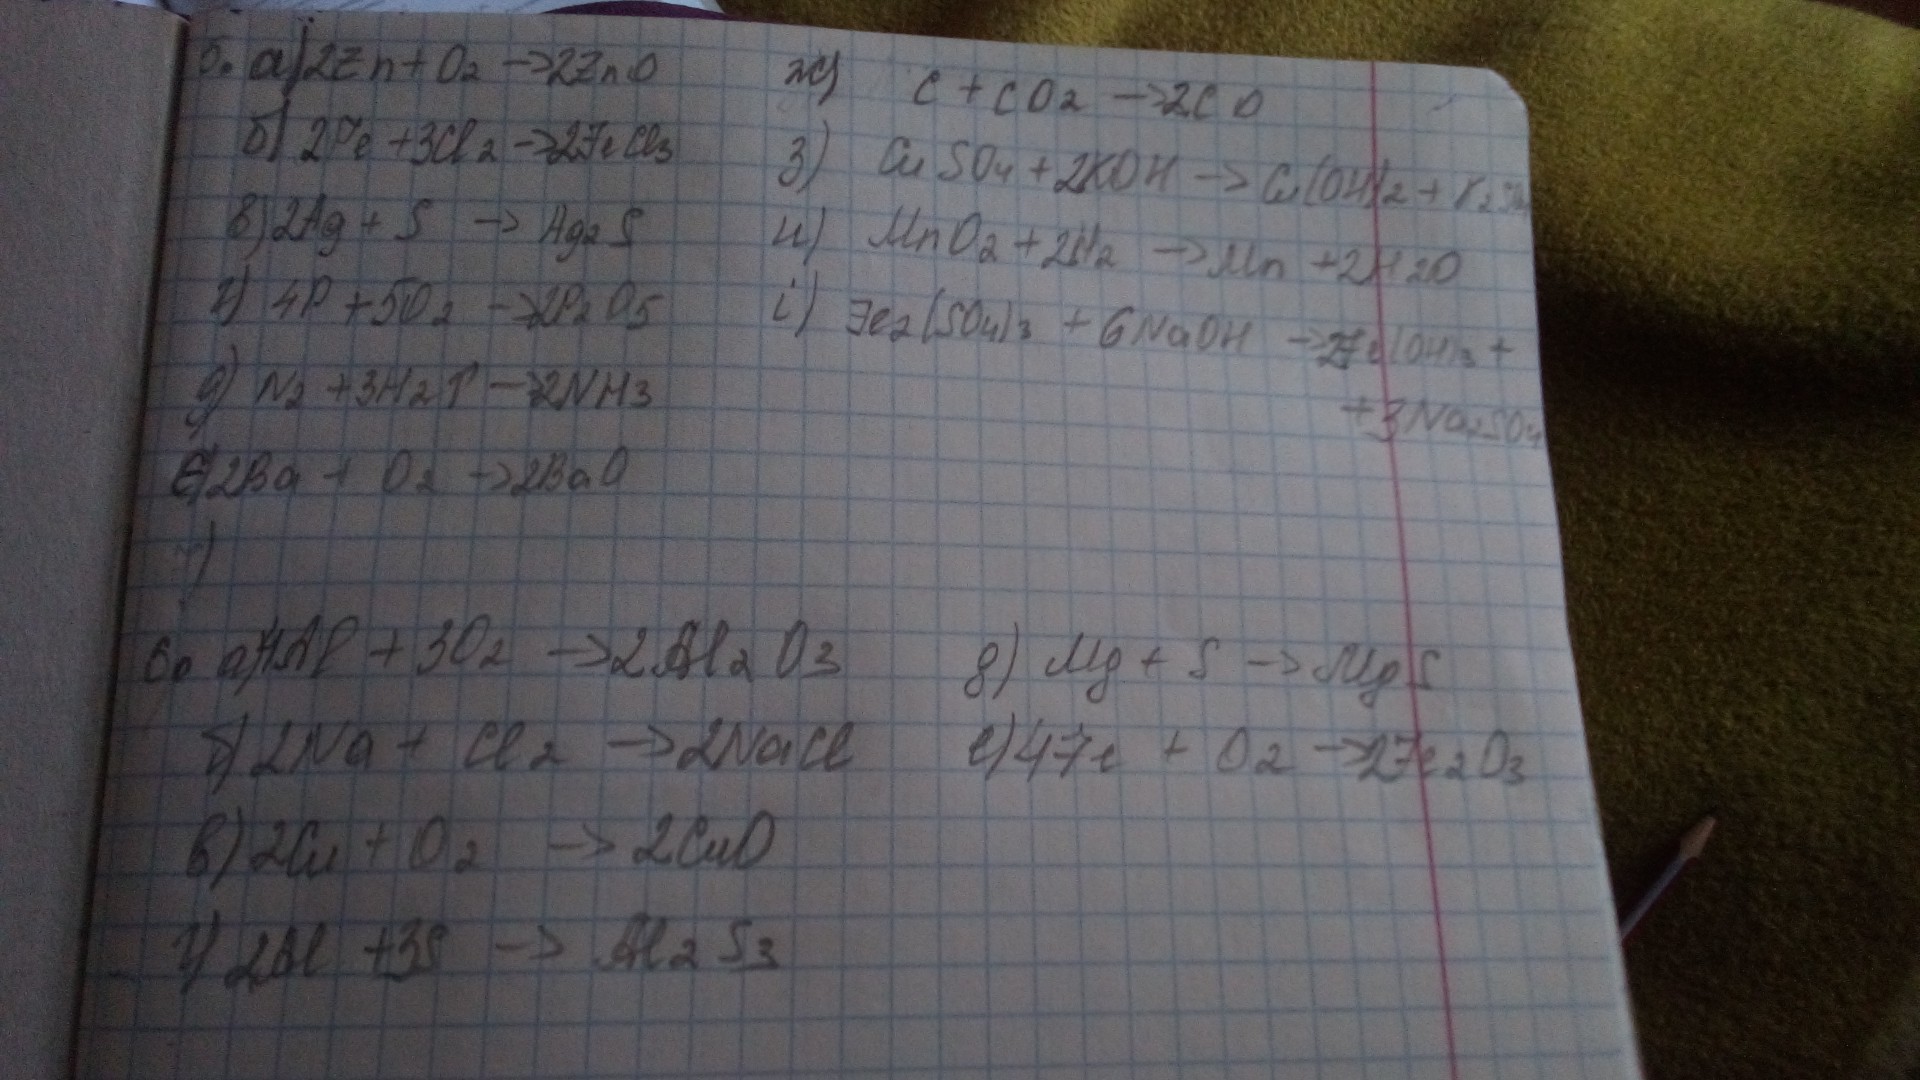 5. а) 2Zn + O2 → 2ZnO
б) 2Fe + 3Cl2 → 2FeCl3
в) 2Ag + S → Ag2S
г) 4P + 5O2 → 2P2O5
д) N2 + 3H2↑ → 2NH3
е) 2Ba + O2 → 2BaO
ж) C + CO2 → 2CO
з) CuSO4 + 2KOH → Cu(OH)2 + K2SO4
и) MnO2 + 2H2 → Mn + 2H2O
і) Fe2(SO4)3 + 6NaOH → 2Fe(OH)3 +
+ 3Na2SO4
6. а) 4Al + 3O2 → 2Al2O3
б) 2Na + Cl2 → 2NaCl
в) 2Cu + O2 → 2CuO
г) 2Al + 3S → Al2S3
д) Mg + S → MgS
е) 4Fe + O2 → 2Fe2O3